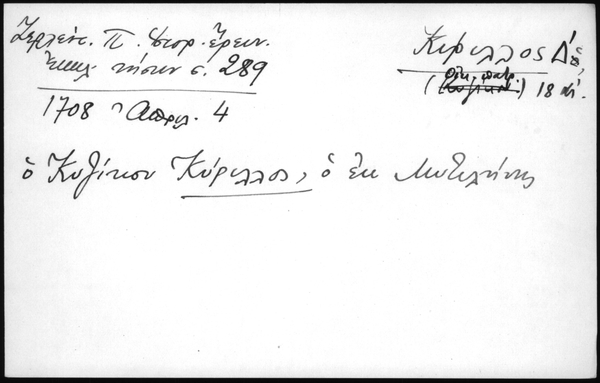 Ζερλέντ. Π. Ἱστορ. ἔρευν.
ἐκκλ. νήσων σ. 289
1708 Ἀπριλ. 4
Κύριλλος Δ΄
(οἰκ. πατρ.) 18 αἰ.
ὁ Κυζίκου Κύριλλος, ὁ ἐκ Μυτιλήνης